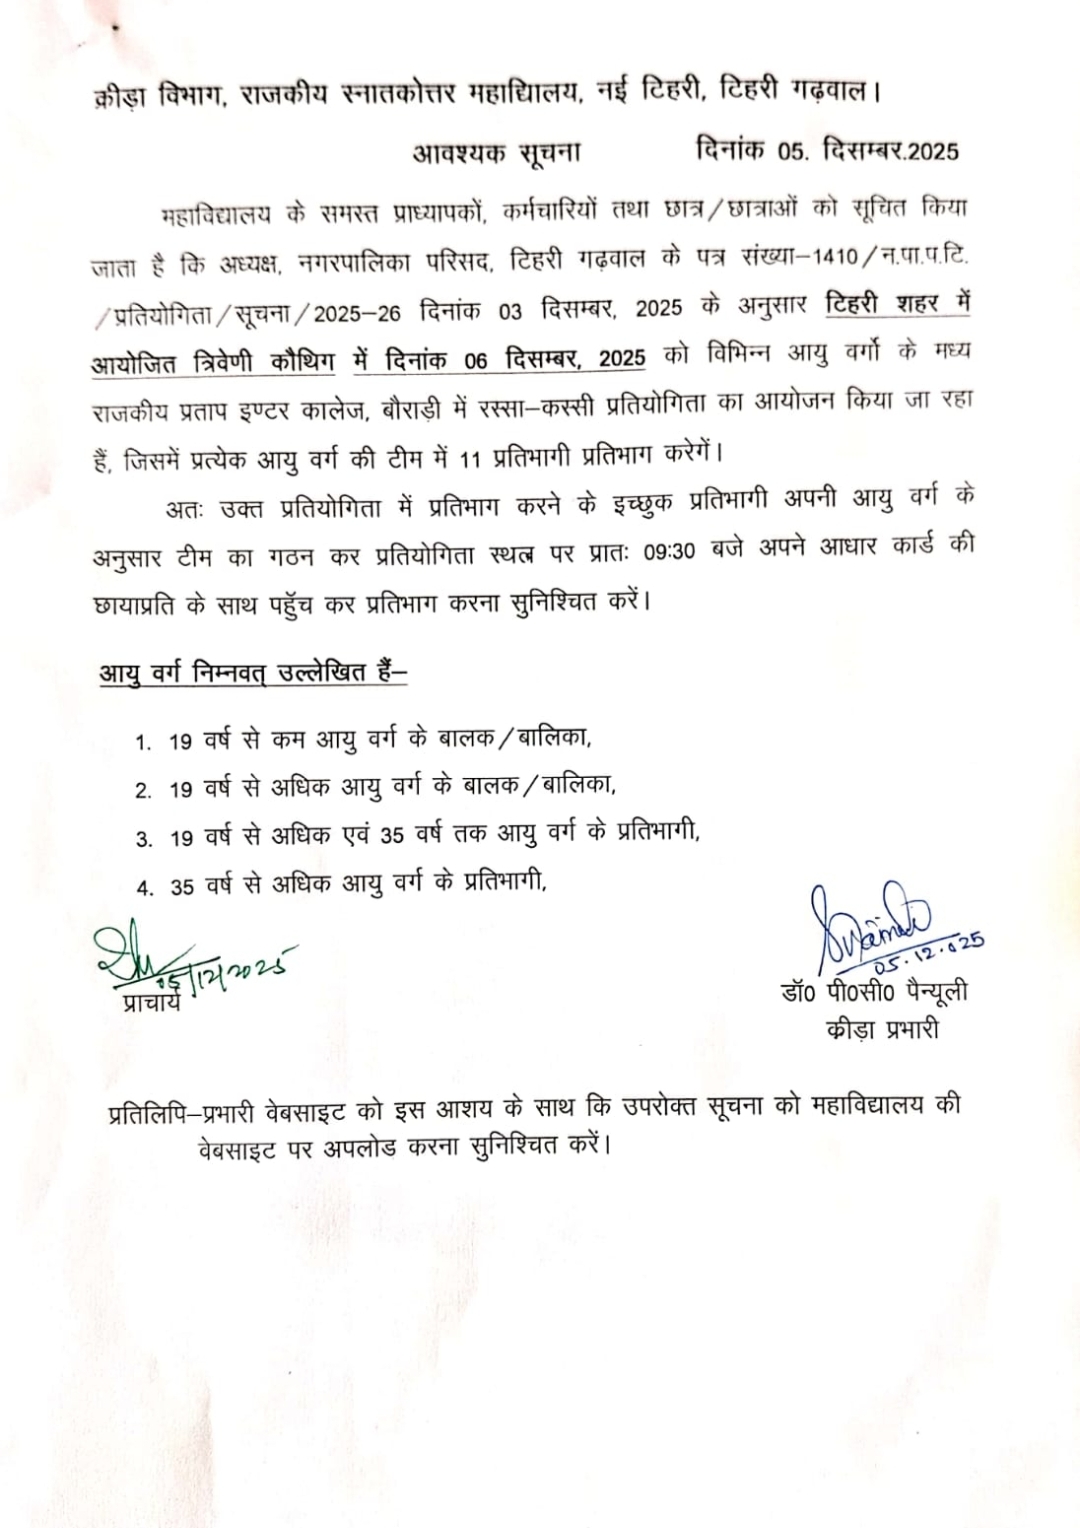 क्रीड़ा विभाग, राजकीय स्नातकोत्तर महाद्यिालय, नई टिहरी, टिहरी गढ़वाल।
आवश्यक सूचना दिनांक 05. दिसम्बर.2025
महाविद्यालय के समस्त प्राध्यापकों, कर्मचारियों तथा छात्र/छात्राओं को सूचित किया
जाता है कि अध्यक्ष, नगरपालिका परिसद, टिहरी गढ़वाल के पत्र संख्या–1410/न.पा.प.टि.
/प्रतियोगिता/सूचना/2025–26 दिनांक 03 दिसम्बर, 2025 के अनुसार टिहरी शहर में
आयोजित त्रिवेणी कौथिग में दिनांक 06 दिसम्बर, 2025 को विभिन्न आयु वर्गो के मध्य
राजकीय प्रताप इण्टर कालेज, बौराड़ी में रस्सा–कस्सी प्रतियोगिता का आयोजन किया जा रहा
हैं, जिसमें प्रत्येक आयु वर्ग की टीम में 11 प्रतिभागी प्रतिभाग करेगें।
अतः उक्त प्रतियोगिता में प्रतिभाग करने के इच्छुक प्रतिभागी अपनी आयु वर्ग के
अनुसार टीम का गठन कर प्रतियोगिता स्थल पर प्रातः 09:30 बजे अपने आधार कार्ड की
छायाप्रति के साथ पहुॅच कर प्रतिभाग करना सुनिश्चित करें।
आयु वर्ग निम्नवत् उल्लेखित हैं–
1. 19 वर्ष से कम आयु वर्ग के बालक/बालिका,
2. 19 वर्ष से अधिक आयु वर्ग के बालक/बालिका,
3. 19 वर्ष से अधिक एवं 35 वर्ष तक आयु वर्ग के प्रतिभागी,
4. 35 वर्ष से अधिक आयु वर्ग के प्रतिभागी,
05/12/2025
प्राचार्य
05.12.025
डॉ0 पी0सी0 पैन्यूली
क्रीड़ा प्रभारी
प्रतिलिपि–प्रभारी वेबसाइट को इस आशय के साथ कि उपरोक्त सूचना को महाविद्यालय की
वेबसाइट पर अपलोड करना सुनिश्चित करें।